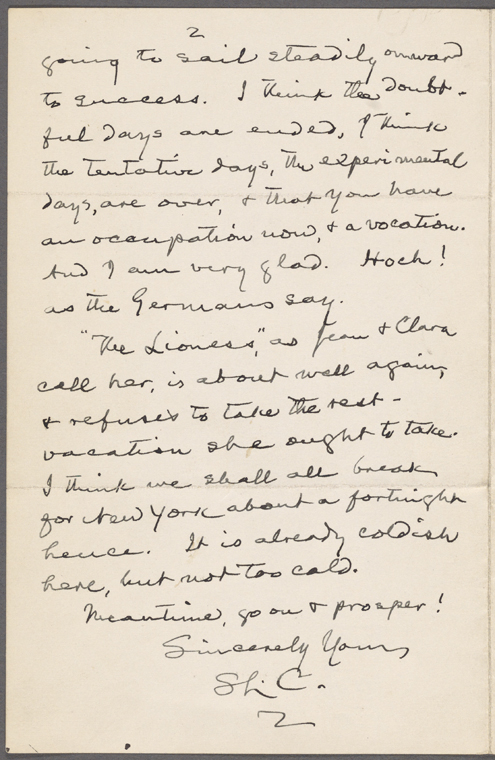 2
going to sail steadily onward
to success. I think the doubt-
ful days are ended, I think
the tentative days, the experimental
days, are over, & that you have
an occupation now, & a vocation.
And I am very glad. Hoch!
as the Germans say.
"The Lioness," as Jean & Clara
call her, is about well again,
& refuses to take the rest-
vacation she ought to take.
I think we shall all break
for New York about a fortnight
hence. It is already coldish
here, but not too cold.
Meantime, go on & prosper!
Sincerely Yours
S. L. C.